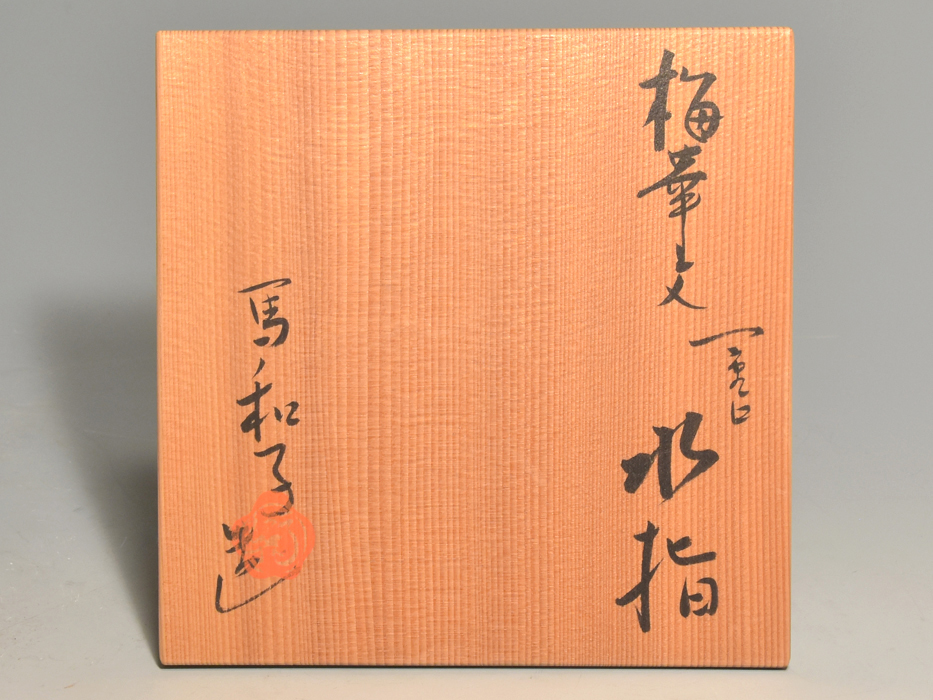 梅華文
一重口
水指
写和子造